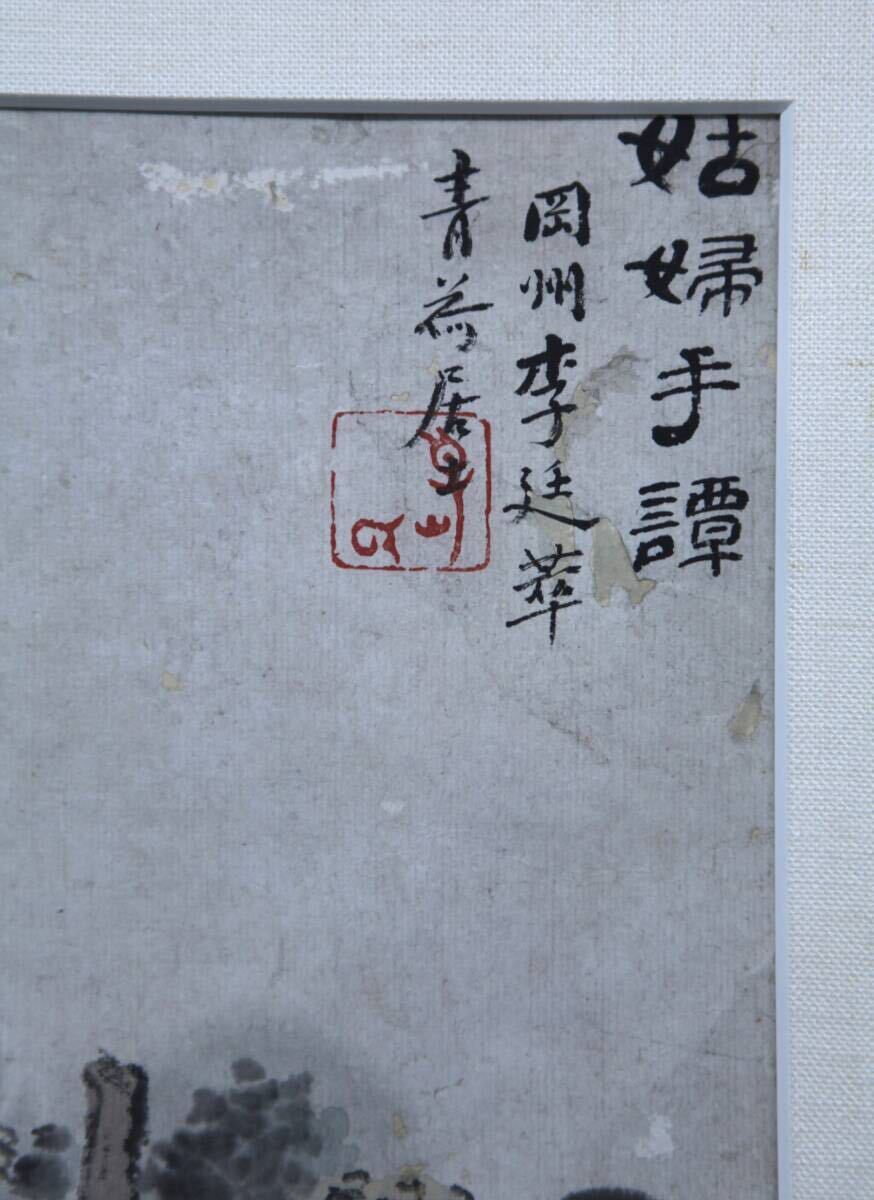 姑婦手譚
岡州李廷萃
青荷居士